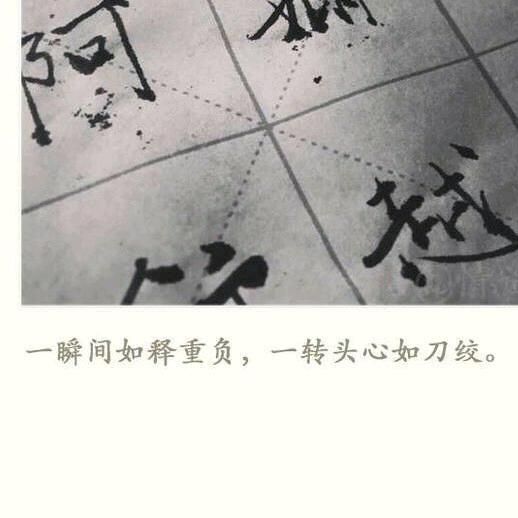 阿
越
一瞬间如释重负，一转头心如刀绞。